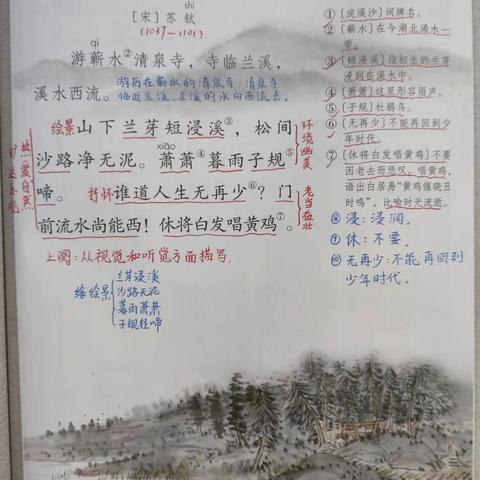 shì
[宋] 苏轼
(1037—1101)
qí
游蕲水②清泉寺，寺临兰溪，
游历在蕲水的清泉寺，清泉寺
溪水西流。
临近兰溪，兰溪的水向西流去。
绘景
山下兰芽短浸溪③，松间
xiāo
沙路净无泥。萧萧④暮雨子规⑤
啼。
抒怀
谁道人生无再少⑥？门
前流水尚能西！休将白发唱黄鸡⑦。
环境幽美
老当益壮
热爱自然
旷达乐观
上阕:从视觉和听觉方面描写.
绘景
兰芽浸溪
沙路无泥
暮雨萧萧
子规轻啼
①[浣溪沙]词牌名。
②[蕲水]在今湖北浠水一
带。
③[短浸溪]指初生的兰芽
浸润在溪水中。
④[萧萧]这里形容雨声。
⑤[子规]杜鹃鸟。
⑥[无再少]不能再回到少
年时代。
⑦[休将白发唱黄鸡]不要
因老去而悲叹。唱黄鸡，
语出白居易“黄鸡催晓丑
时鸣”，比喻时光流逝。
⑧浸：浸润。
⑨休：不要。
⑩无再少：不能再回到
少年时代。